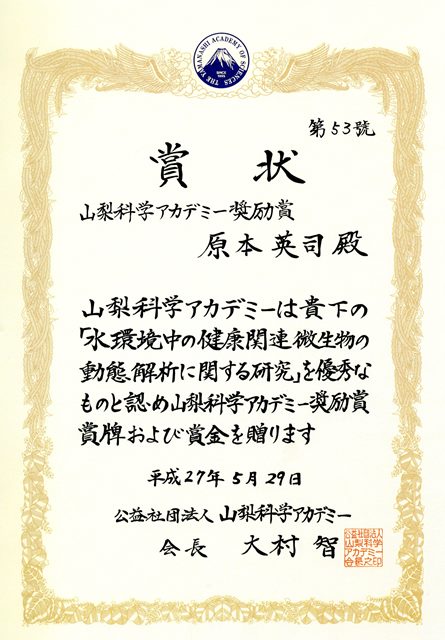 THE YAMANASHI ACADEMY OF SCIENCES
SINCE
1995
第53號
賞状
山梨科学アカデミー奨励賞
原本英司殿
山梨科学アカデミーは貴下の
「水環境中の健康関連微生物の
動態解析に関する研究」を優秀な
ものと認め山梨科学アカデミー奨励賞
賞牌および賞金を贈ります
平成27年5月29日
公益社団法人 山梨科学アカデミー
会長 大村智
公益社団法人
山梨科学
アカデミー
会長之印